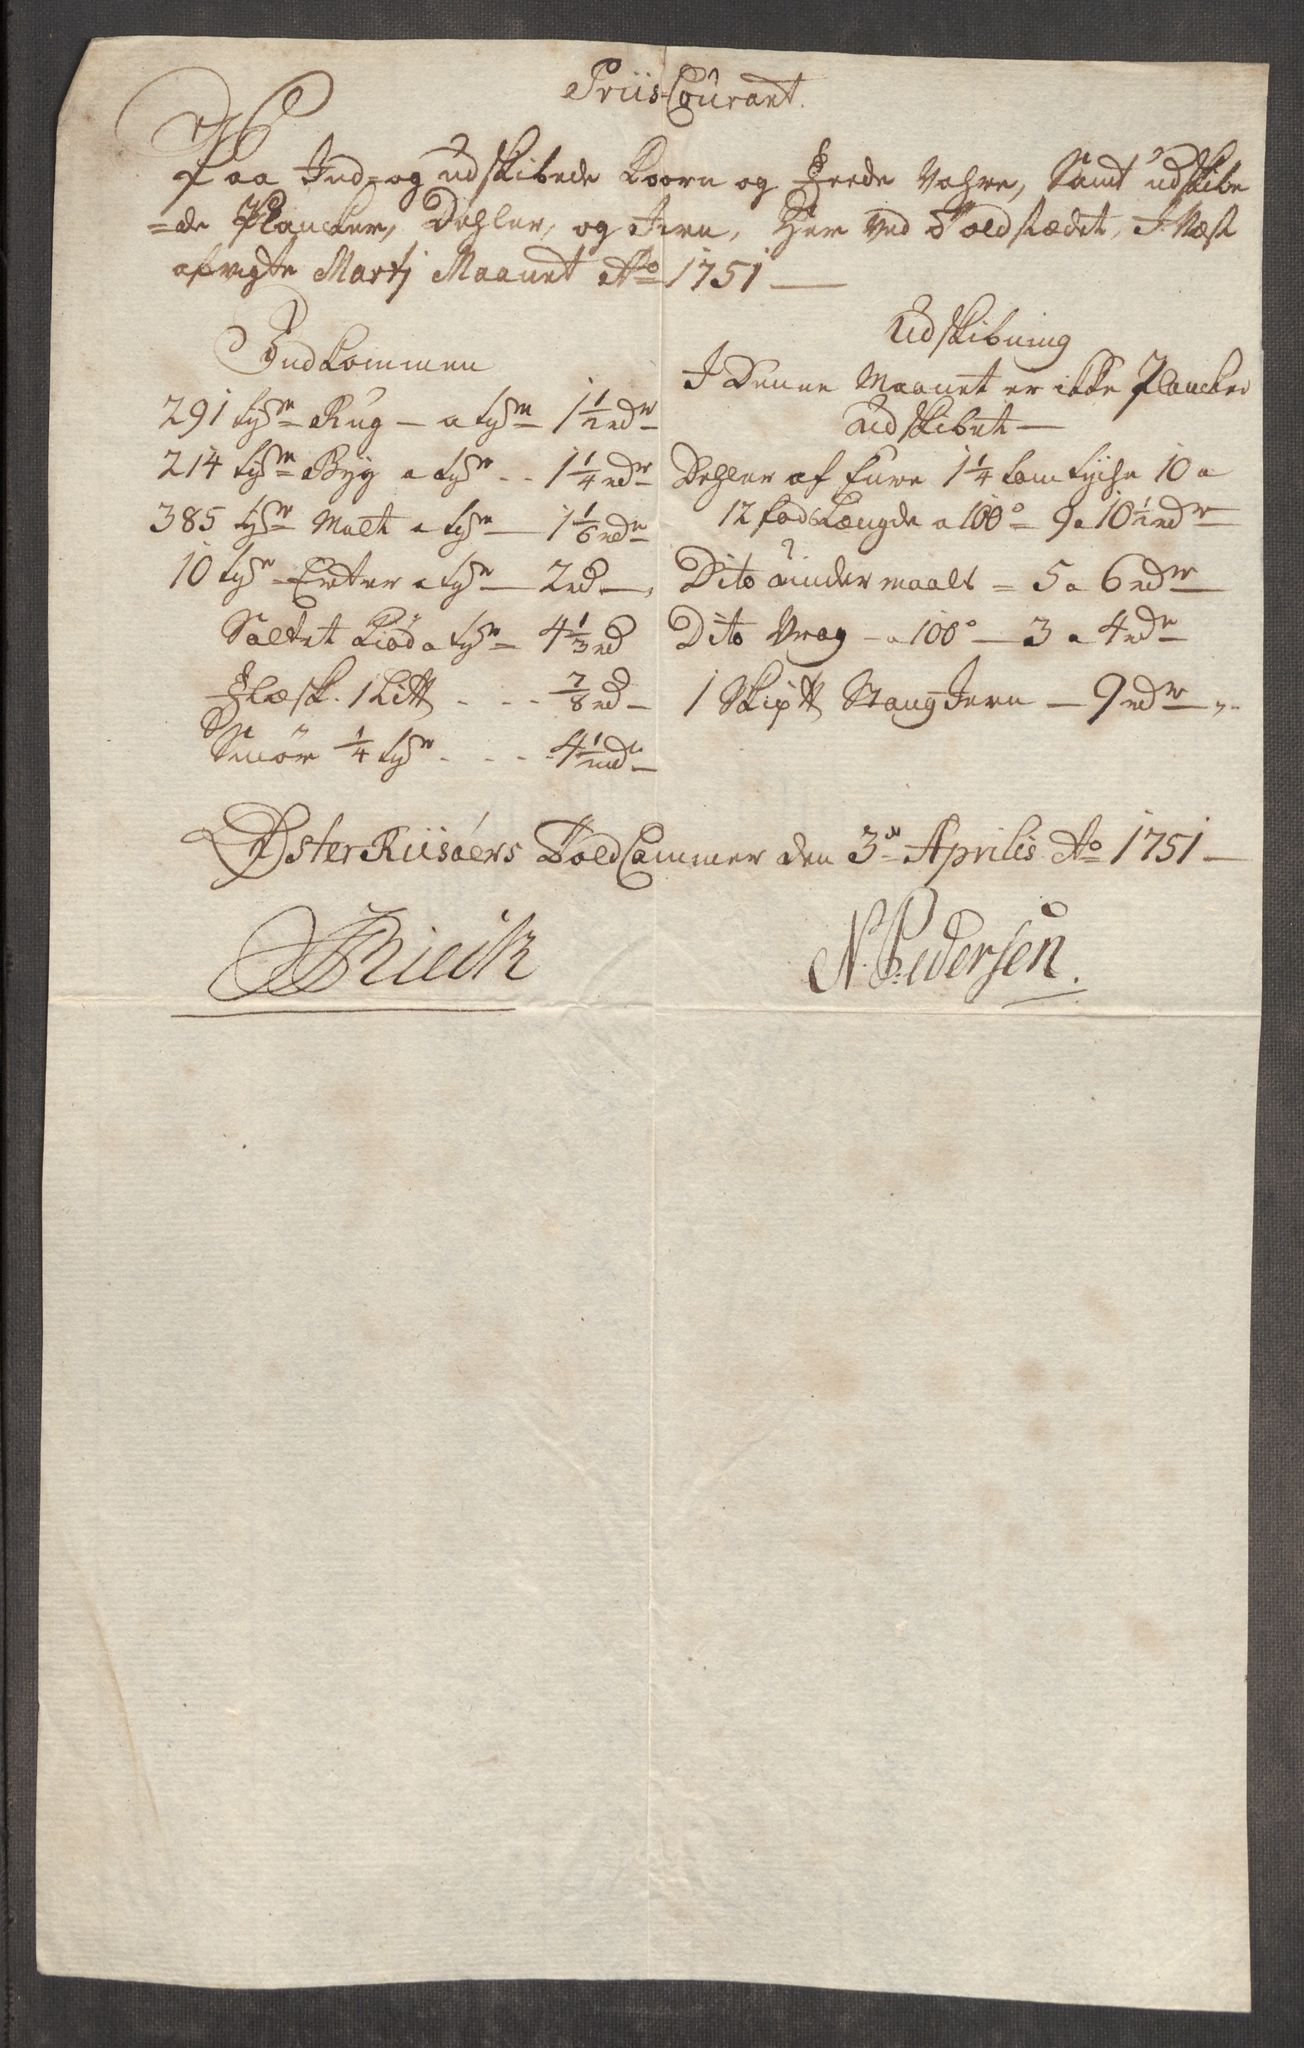 Priis-Courant.
Paa Ind- og udskibede Koorn og Feede Vahre, Samt udskibe
=de Plancker, Dehler, og Jern, Her Ved Toldstædet, I Næst
afvigte Martj Maanet Ao 1751
Indkommen
291 tyr Rug – a tyr 1 1/2 rdr
214 tyr Byg a tyr - - 1 1/4 rdr
385 tyr Malt a tyr – 1 1/6 rdr
10 tyr Erter a tyr – 2 rd –
Saltet Kiød a tyr = 4 1/3 rd
Flæsk. 1 Li℔ - - - 7/8 rd –
Smør 1/4 tyr - - - 4 1/2 rdr
Udskibning
I Denne Maanet er ikke Plancker
Udskibet –
Dehler af Fure 1 1/4 tom tyche 10 a
12 fods Længde a 100° = 9 a 10 1/2 rdr
Dito under maals = 5 a 6 rdr
Dito Vrag – a 100° – 3 a 4 rdr
1 Skip℔ Stang Jern – 9 rdr
Øster Riisøers Told Cammer den 3de Aprilis Ao 1751 –
N. Pedersen.